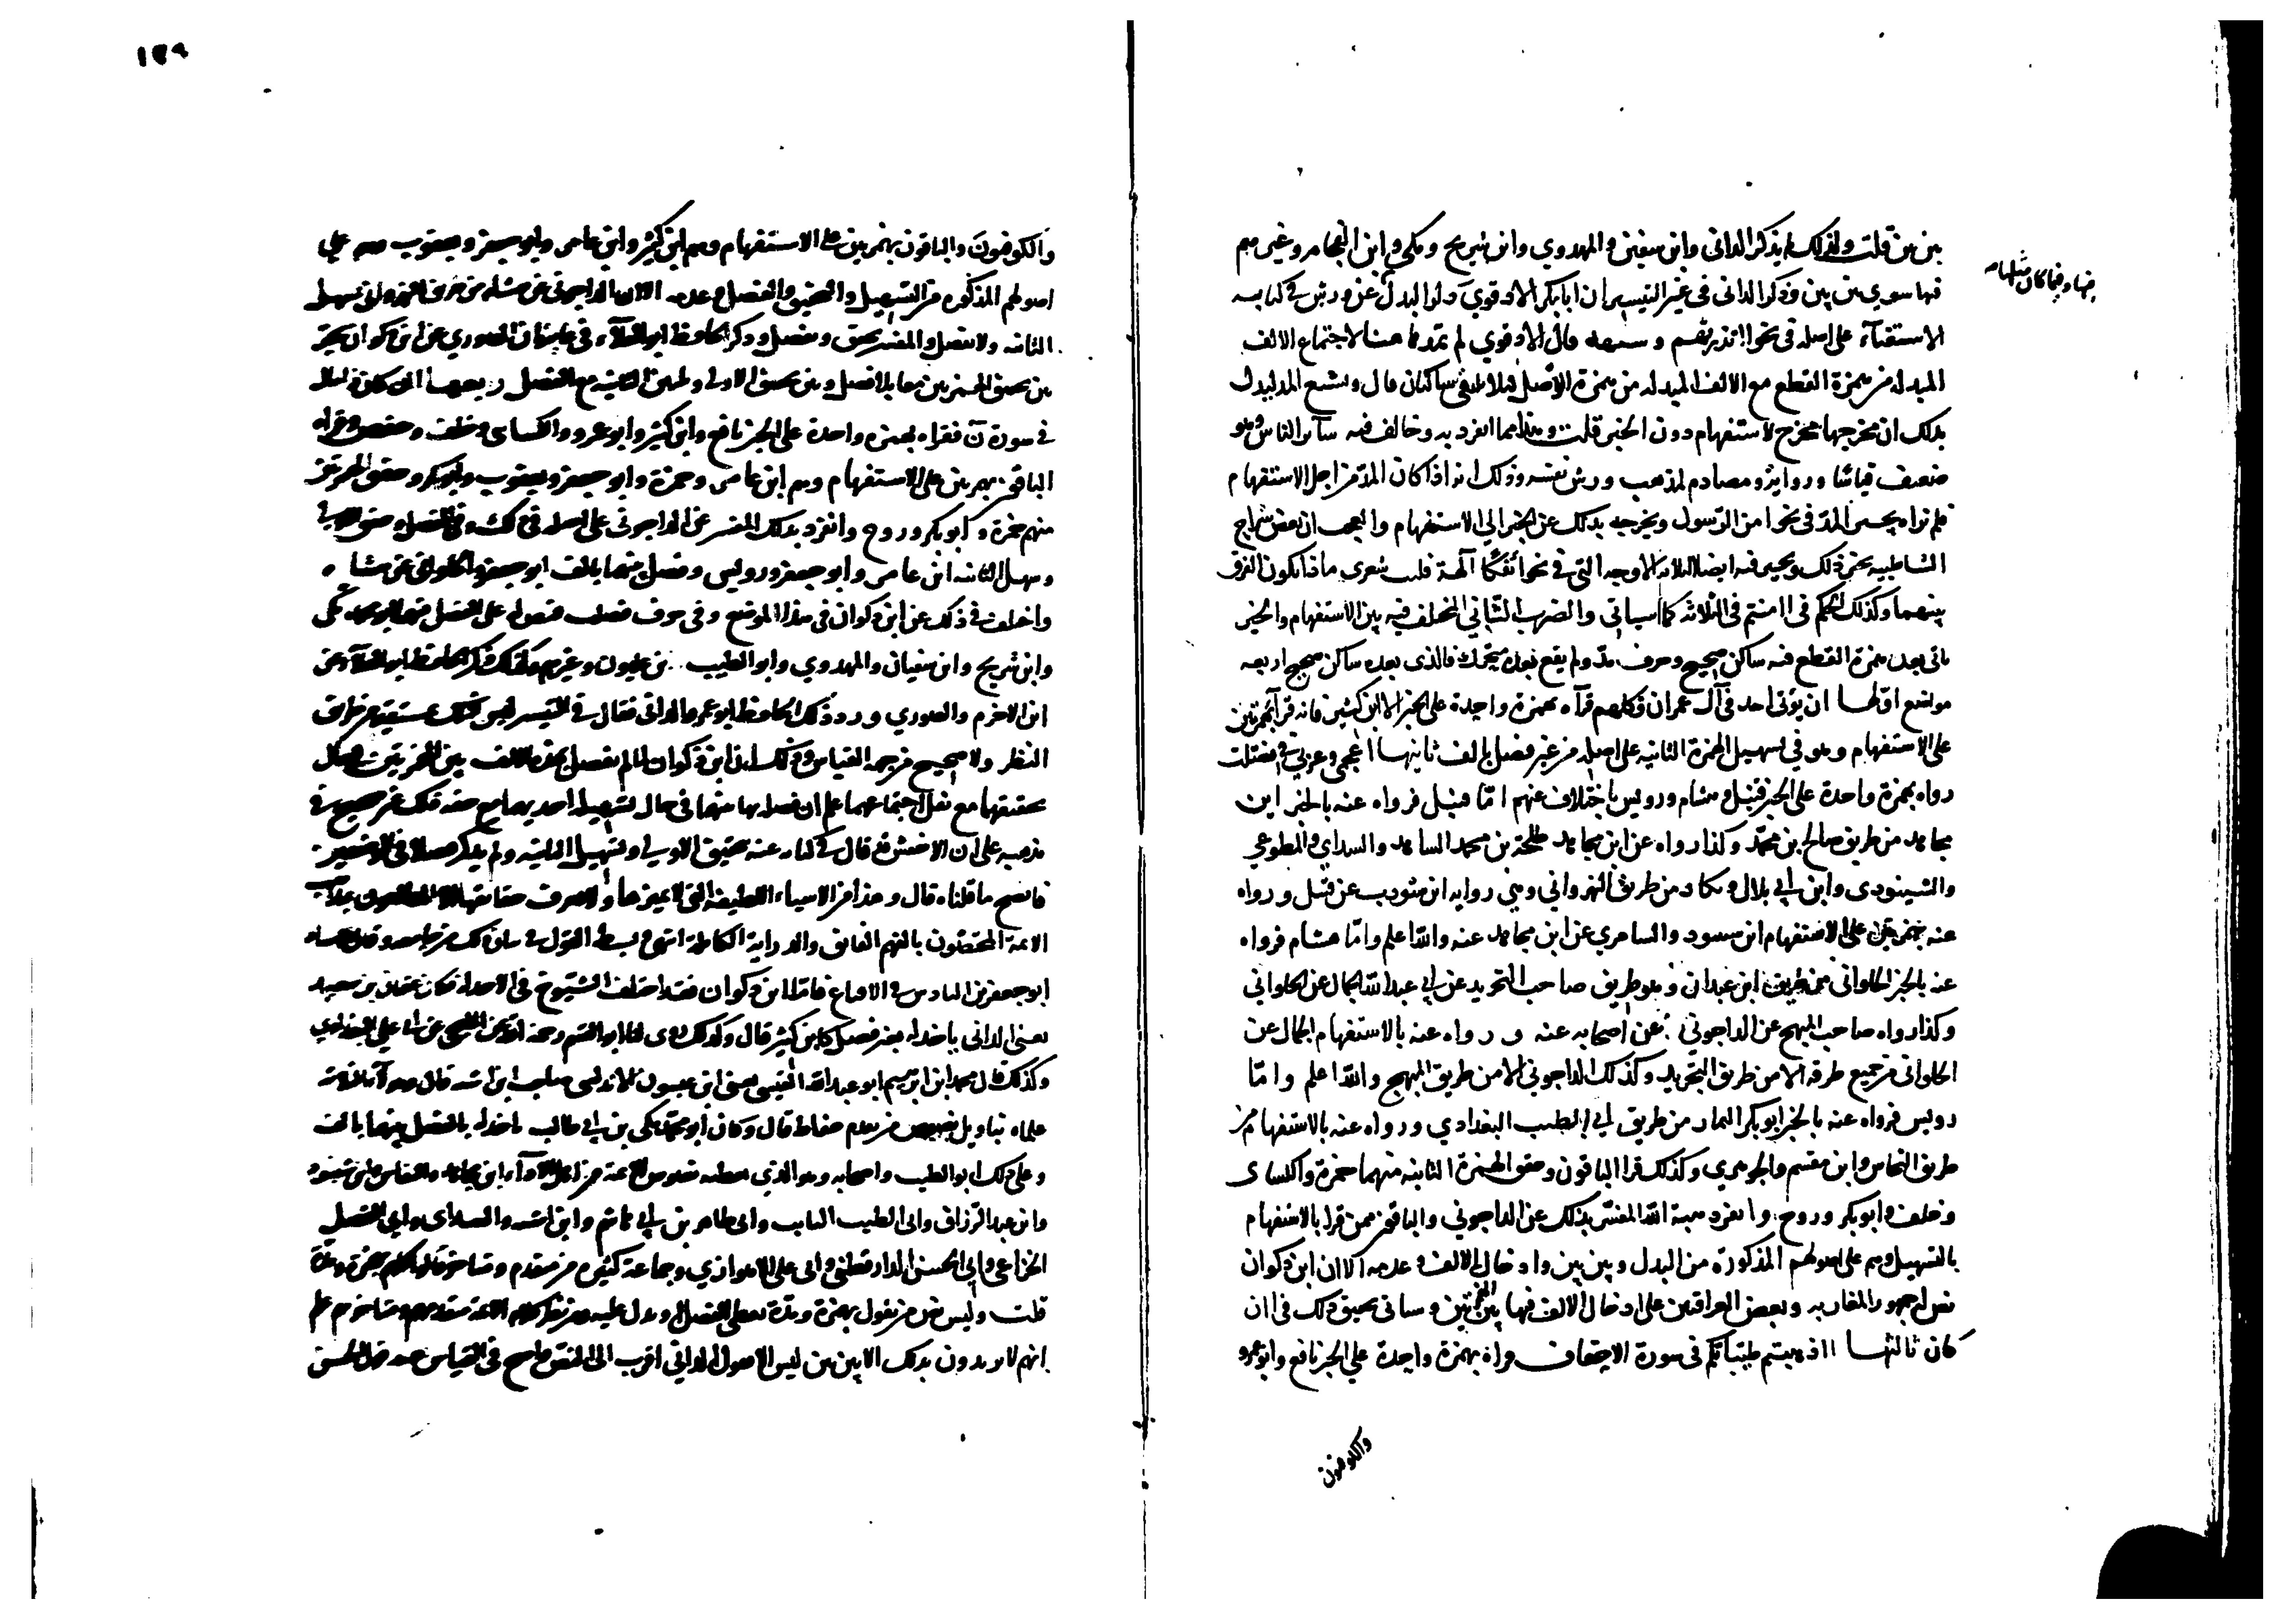 بين بين قلت ولذلك لم يذكر الداني وابن سفين والمهدوي وابن شريح ومكي وابن الفحام وغيرهم
فيها سوى بين بين وذكر الداني في غير التيسير ان ابا بكر الادفوي ذكر البدل عن ورش في كتابه
الاستغناء على اصله في نحو اانذرتهم وشبهه قال الادفوي لم تمدها هنا لاجتماع الالف
المبدلة من همزة القطع مع الالف المبدلة من همزة الاصل لئلا يلتقي ساكنان قال ويشبع المد ليدل
بذلك ان مخرجها مخرج الاستفهام دون الخبر قلت وهذا مما انفرد به وخالف فيه سائر الناس وهو
ضعيف قياسا ورواية ومصادم لمذهب ورش نفسه وذلك انه اذا كان المد من اجل الاستفهام
فلم نراه يجيز المد في نحو امن الرسول ويخرجه بذلك عن الخبر الى الاستفهام والعجب ان بعض شراح
الشاطبية يجيز ذلك ويجيز فيه ايضا الثلاثة الاوجه التي في نحو ائفكا آلهة فليت شعري ماذا يكون الفرق
بينهما وكذلك الحكم في اامنتم في الثلاثة كما سياتي والضرب الثاني المختلف فيه بين الاستفهام والخبر
ياتي بعد همزة القطع فيه ساكن صحيح وحرف مد ولم يقع بعده متحرك فالذي بعده ساكن صحيح اربعة
مواضع اولها ان يؤتى احد في آل عمران فكلهم قرأه بهمزة واحدة على الخبر الا ابن كثير فانه قرأ بهمزتين
على الاستفهام وهو في تسهيل الهمزة الثانية على اصله من غير فصل بالف ثانيها اعجمي وعربي في فصلت
رواه بهمزة واحدة على الخبر قنبل وهشام ورويس باختلاف عنهم اما قنبل فرواه عنه بالخبر ابن
مجاهد من طريق صالح بن محمد وكذا رواه عن ابن مجاهد طلحة بن محمد الشاهد والشذاي والمطوعي
والشنبوذي وابن ابي بلال وبكار من طريق النهرواني وهي رواية ابن شوذب عن قنبل ورواه
عنه بهمزتين على الاستفهام ابن شنبوذ والسامري عن ابن مجاهد عنه والله اعلم واما هشام فرواه
عنه بالخبر الحلواني من طريق ابن عبدان وهو طريق صاحب التجريد عن ابي عبد الله الجمال عن الحلواني
وكذا رواه صاحب المبهج عن الداجوني عن اصحابه عنه ورواه عنه بالاستفهام الجمال عن
الحلواني من جميع طرقه الا من طريق التجريد وكذلك الداجوني الا من طريق المبهج والله اعلم واما
رويس فرواه عنه بالخبر ابو بكر التمار من طريق ابي الطيب البغدادي ورواه عنه بالاستفهام من
طريق النخاس وابن مقسم والجوهري وكذلك قرا الباقون وحقق الهمزة الثانية منهما حمزة والكساى
وخلف وابو بكر وروح وانفرد هبة الله المفسر بذلك عن الداجوني والباقون ممن قرا بالاستفهام
بالتسهيل وهم على اصولهم المذكورة من البدل وبين بين وادخال الالف وعدمه الا ان ابن ذكوان
نص له جمهور المغاربة وبعض العراقيين على ادخال الالف فيها بين الهمزتين وسياتي تحقيق ذلك في اان
كان ثالثها ااذهبتم طيباتكم في سورة الاحقاف قراه بهمزة واحدة على الخبر نافع وابو عمرو
والكوفيون
فيها وفيما كان مثلها
١٢٩
والكوفيون والباقون بهمزتين على الاستفهام وهم ابن كثير وابن عامر وابو جعفر ويعقوب وهم على
اصولهم المذكورة من التسهيل والتحقيق والفصل وعدمه الا ان الداجوني عن هشام من طريق النهرواني يسهل
الثانية ولا يفصل والمفسر يحقق ويفصل وذكر الحافظ ابو العلاء في غايته ان الصوري عن ابن ذكوان يخير
بين تحقيق الهمزتين معا بلا فصل وبين تحقيق الاولى وتليين الثانية مع الفصل رابعها ان كان ذا مال
في سورة ن فقراه بهمزة واحدة على الخبر نافع وابن كثير وابو عمرو والكساى وخلف وحفص وقراه
الباقون بهمزتين على الاستفهام وهم ابن عامر وحمزة وابو جعفر ويعقوب وابو بكر وحقق الهمزتين
منهم حمزة وابو بكر وروح وانفرد بذلك المفسر عن الداجوني على اصله في ذلك وفي الفصل وحقق الاولى
وسهل الثانية ابن عامر وابو جعفر ورويس وفصل بينهما بالف ابو جعفر والحلواني عن هشام
واختلف في ذلك عن ابن ذكوان في هذا الموضع وفي حرف فصلت فنص له على الفصل فيهما ابو محمد مكي
وابن شريح وابن سفيان والمهدوي وابو الطيب بن غلبون وغيرهم وكذلك ذكر الحافظ ابو العلاء عن
ابن الاخرم والصوري ورد ذلك الحافظ ابو عمرو الداني فقال في التيسير ليس ذلك بمستقيم من طريق
النظر ولا صحيح من جهة القياس وذلك ان ابن ذكوان لما لم يفصل بهذه الالف بين الهمزتين في حال
تحقيقهما مع ثقل اجتماعهما علم ان فصله بها بينهما في حال تسهيله احديهما مع خفة ذلك غير صحيح في
مذهبه على ان الاخفش قد قال في كتابه عنه بتحقيق الاولى وتسهيل الثانية ولم يذكر فصلا في الموضعين
فاتضح ما قلناه قال وهذا من الاشياء اللطيفة التي لا يميزها ولا يعرف حقائقها الا المطلعون بمذاهب
الائمة المختصون بالفهم الفائق والدراية الكاملة انتهى وبسط القول في بيان ذلك في جامعه وقال الاستاذ
ابو جعفر بن الباذش في الاقناع فاما ابن ذكوان فقد اختلف الشيوخ في الاخذ له فكان عثمان بن سعيد
يعني الداني ياخذ له بغير فصل كابن كثير قال وكذلك روى لنا ابو القاسم رحمه الله عن المليحي عن ابي علي البغدادي
وكذلك قال محمد ابن ابراهيم ابو عبد الله القيسي يعني ابن عيسون الاندلسي صاحب ابن اشته قال وهؤلاء الثلاثة
علماء بتاويل نصوص من تقدم حفاظ قال وكان ابو محمد مكي بن ابي طالب ياخذ له بالفصل بينهما بالف
وعلى ذلك ابو الطيب واصحابه وهو الذي تعطيه نصوص الائمة من اهل الاداء ابن مجاهد والنقاش وابن شنبوذ
وابن عبد الرزاق وابى الطيب التايب وابى طاهر بن ابي هاشم وابن اشته والشذاى وابي الفضل
الخزاعي وابي الحسن الدارقطني وابى علي الاهوازي وجماعة كثيرة من متقدم ومتاخر قالوا كلهم بهمزة ومدة
قلت وليس نص من يقول بهمزة ومدة يعطي الفصل او يدل عليه ومن نظر كلام الائمة متقدمهم ومتاخرهم علم
انهم لا يريدون بذلك الا بين بين ليس الا فقول الداني اقرب الى النص واصح في القياس نعم قول الحسن